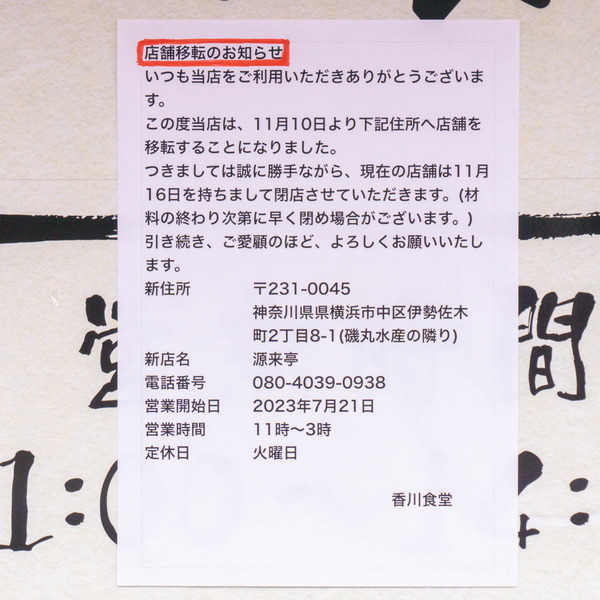 店舗移転のお知らせ
いつも当店をご利用いただきありがとうございま
す。
この度当店は、11月10日より下記住所へ店舗を
移転することになりました。
つきましては誠に勝手ながら、現在の店舗は11月
16日を持ちまして閉店させていただきます。(材
料の終わり次第に早く閉め場合がございます。)
引き続き、ご愛顧のほど、よろしくお願いいたし
ます。
新住所 〒231-0045
神奈川県県横浜市中区伊勢佐木
町2丁目8-1(磯丸水産の隣り)
新店名 源来亭
電話番号 080-4039-0938
営業開始日 2023年7月21日
営業時間 11時〜3時
定休日 火曜日
香川食堂
営 間
1:0 4: